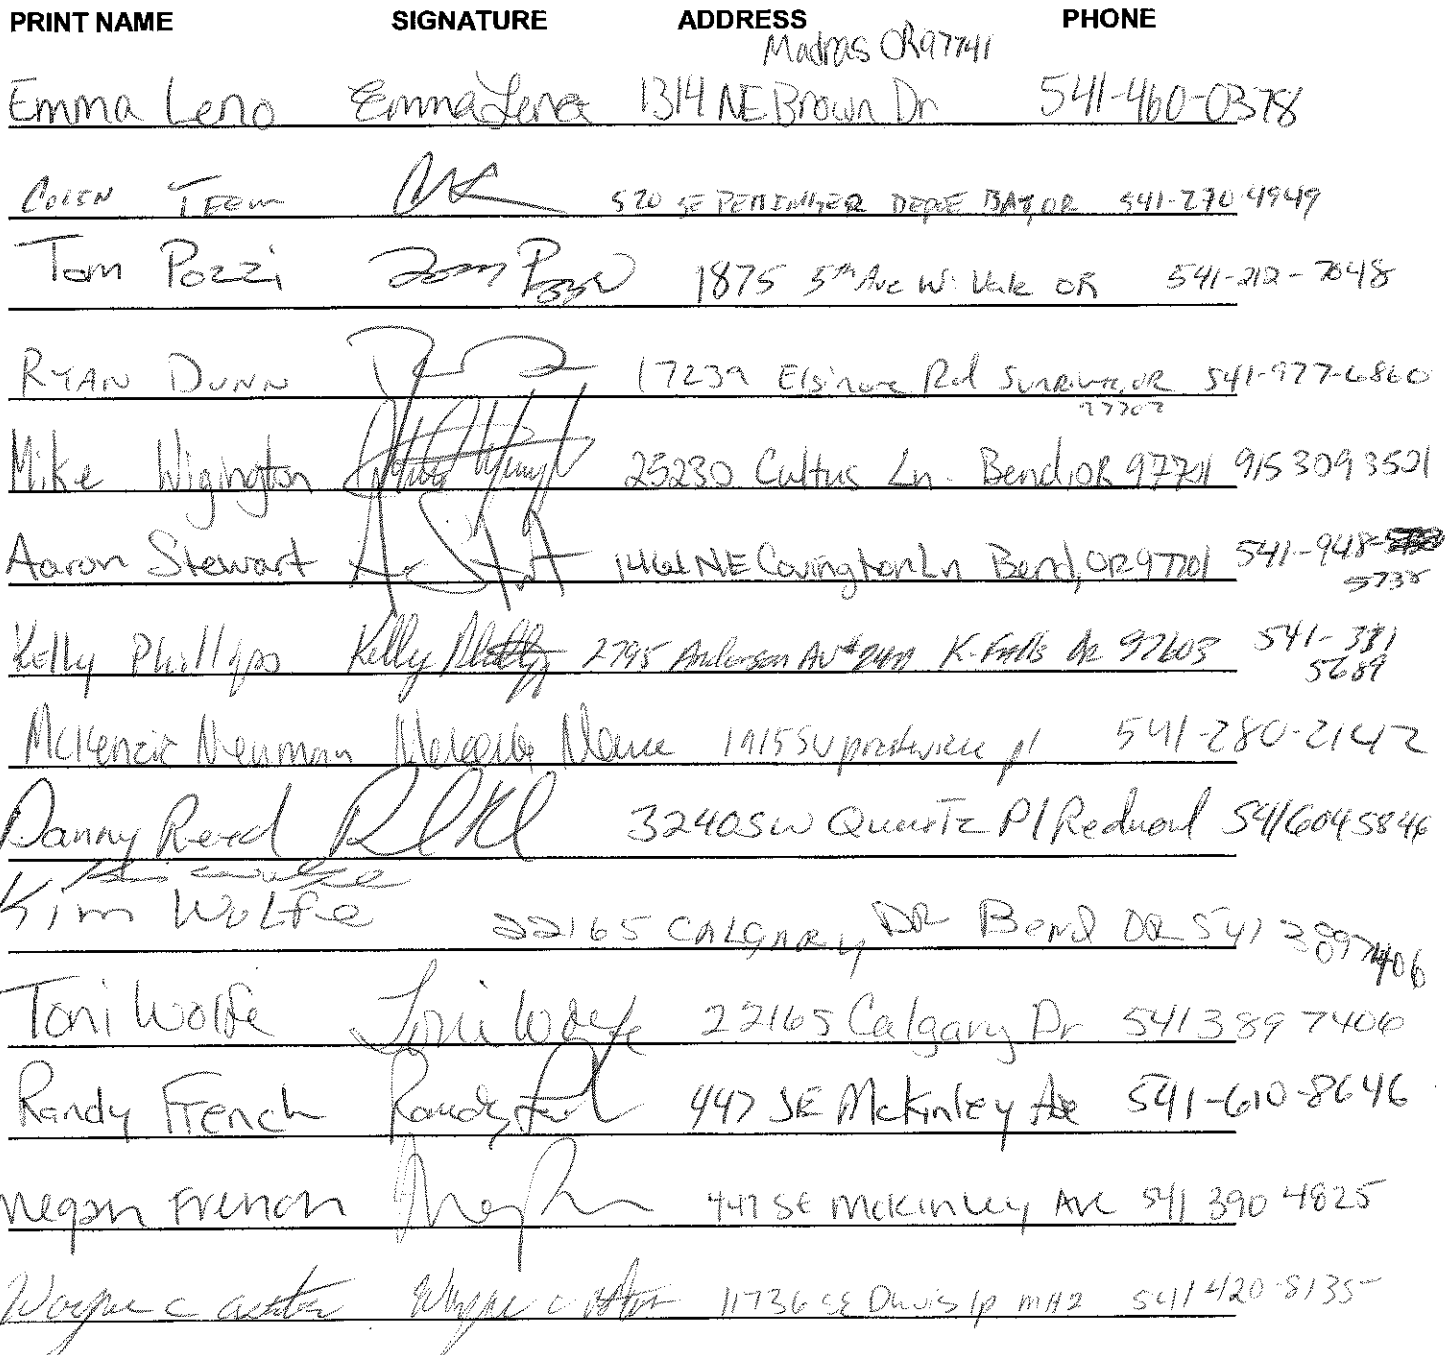 PRINT NAME SIGNATURE ADDRESS PHONE
Madras OR 97741
Emma Leno Emma Leno 1314 NE Brown Dr 541-460-0378
520 SE DEPOE BAY, OR 541-270-4949
Tom Pozzi Tom Pozzi 1875 5th Ave W. Vale OR 541-212-7048
RYAN DUNN 17239 Elsinore Rd Sunriver, OR 541-977-6860
97707
Mike Wigington 25230 Cultus Ln. Bend, OR 97701 915 309 3521
Aaron Stewart NE Covington Ln Bend, OR 97701 541-948-
5738
Kelly Phillips Kelly 2795 Anderson Av # K-Falls Or 97603 541-
5689
McKenzie Neuman 1915 SW pl 541-280-2142
Danny Reed 3240 SW Quartz Pl Redmond 541 604 5846
Kim Wolfe
Kim Wolfe 22165 CALGARY DR Bend OR 541 389 7406
Toni Wolfe Toni Wolfe 22165 Calgary Dr 541 389 7406
Randy French Randy 447 SE McKinley Ave 541-610-8646
Megan French 447 SE McKinley Ave 541 390 4825
Wayne C Wayne C 11736 SE Davis lp 541 420-8135